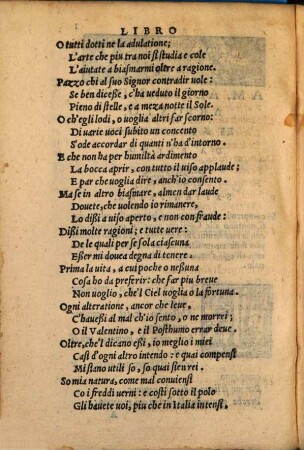 LIBRO
O tutti dotti ne la adulatione;
L'arte che piu tra noi si studia e cole
L'aiutate a biasmarmi oltre a ragione.
Pazzo chi al suo Signor contradir uole:
Se ben dicesse, c'ha veduto il giorno
Pieno di stelle, e a mezza notte il Sole.
O ch'egli lodi, o uoglia altri far scorno:
Di uarie uoci subito un concento
S'ode accordar di quanti n'ha d'intorno.
E che non ha per humiltà ardimento
La bocca aprir, con tutto il uiso applaude:
E par che uoglia dire, anch'io consento.
Ma se in altro biasmare, almen dar laude
Douete, che uolendo io rimanere,
Lo dißi a uiso aperto, e non con fraude:
Dißi molte ragioni; e tutte uere:
De le quali per se sola ciascuna
Esser mi douea degna di tenere.
Prima la uita, a cui poche o nessuna
Cosa ho da preferir: che far piu breue
Non uoglio, che'l Ciel uoglia o la fortuna.
Ogni alteratione, ancor che leue,
C'hauessi al mal ch'io sento, o ne morrei;
O il Valentino, e il Posthumo errar deue.
Oltre, che'l dicano essi, io meglio i miei
Casi d'ogni altro intendo: e quai compensi
Mi siano utili so, so quai sien rei.
So mia natura, come mal conuiensi
Co i freddi uerni: e costi sotto il polo
Gli hauete uoi, piu che in Italia intensi.